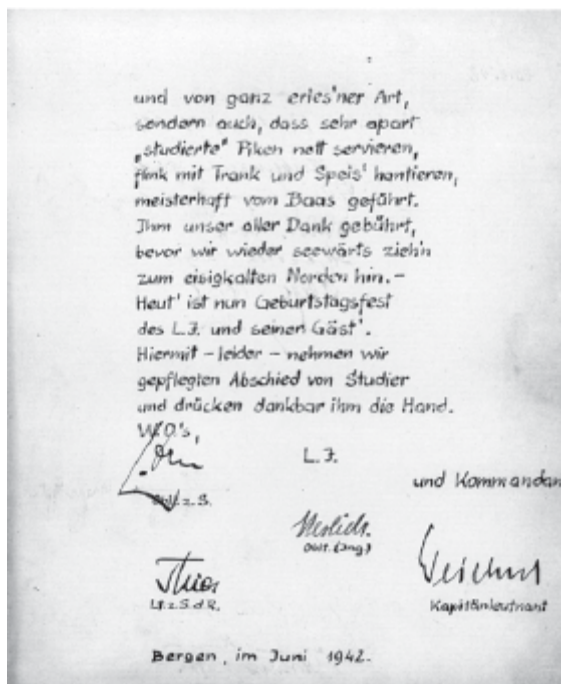 und von ganz erles'ner Art,
sondern auch, dass sehr apart
„studierte" Piken nett servieren,
flink mit Trank und Speis' hantieren,
meisterhaft vom Baas geführt.
Ihm unser aller Dank gebührt,
bevor wir wieder seewärts zieh'n
zum eisigkalten Norden hin. –
Heut' ist nun Geburtstagsfest
des L.I. und seinen Gäst'.
Hiermit – leider – nehmen wir
gepflegten Abschied von Studier
und drücken dankbar ihm die Hand.
W.O.'s,
L.I.
und Kommandan
z.S.
Oblt. (Ing)
Lt. z. S. d. R.
Kapitänleutnant
Bergen, im Juni 1942.